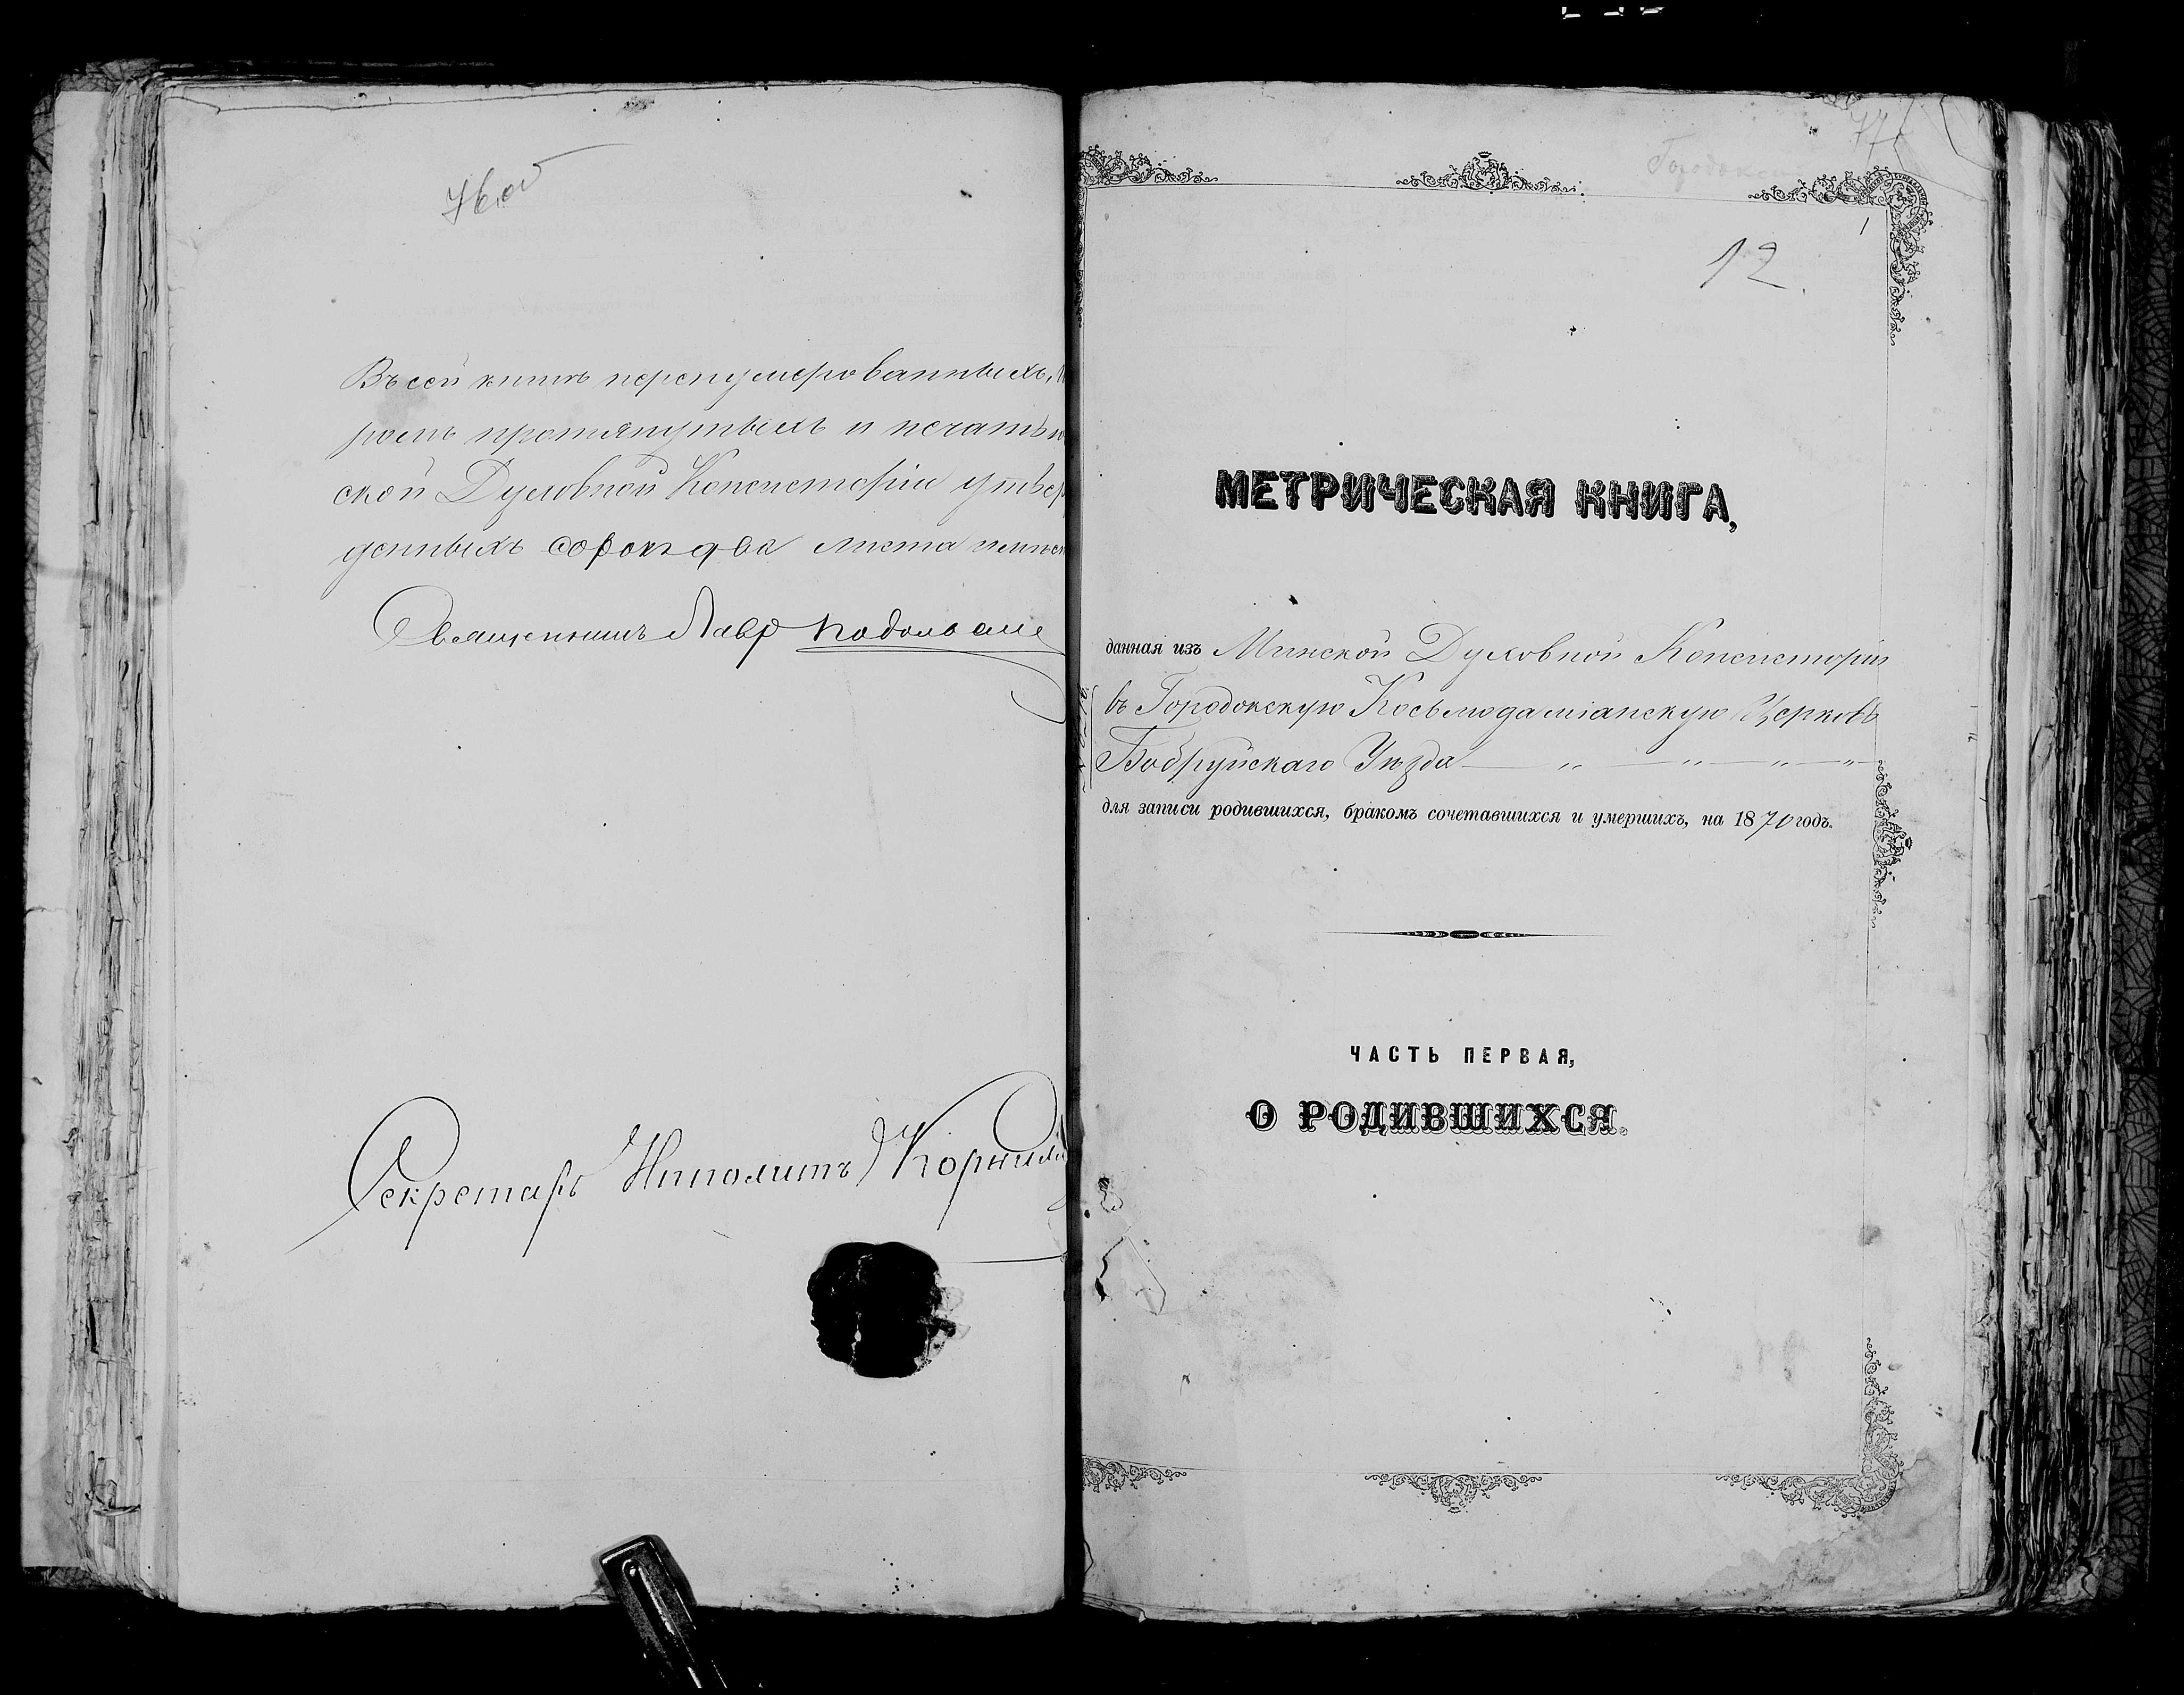 76 об
Въ сей книгѣ перенумерованныхъ,
ромъ протянутыхъ и печатью
ской Духовной Консисторіи утвер
денныхъ сорокъ два листа
Священникъ Лавр
Секретарь Ипполитъ Корнил
77
Городокск
1
12.
МЕТРИЧЕСКАЯ КНИГА,
данная изъ Минской Духовной Консисторіи
въ Городокскую Косьмодаміанскую Церковь
Бобруйскаго Уѣзда — „ — „ — „ — „ —
для записи родившихся, бракомъ сочетавшихся и умершихъ, на 1870 годъ.
ЧАСТЬ ПЕРВАЯ,
О РОДИВШИХСЯ.